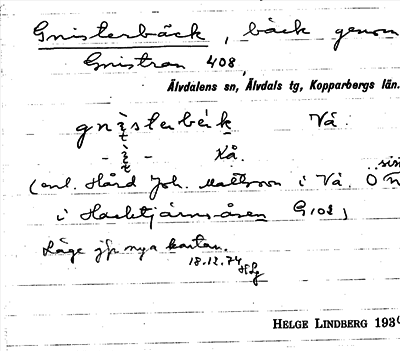 Gnisterbäck, bäck genom
Gnistran 408,
Älvdalens sn, Älvdals tg, Kopparbergs län.
Vå.
- -  Kå.
(enl. Hård Joh. Mattsson i Vå. Ö
i Hacktjärnsåsen G102)
Läge jfr nya kartan.
18.12.74
HELGE LINDBERG 193